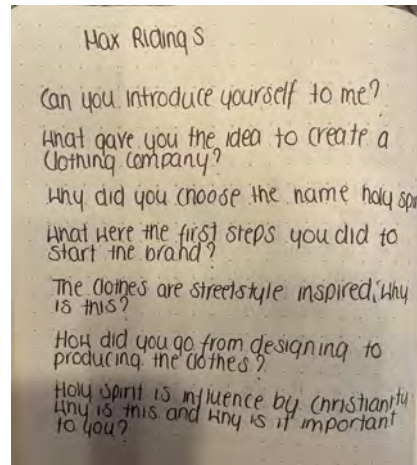 Max Ridings
Can you introduce yourself to me?
What gave you the idea to create a
clothing company?
Why did you choose the name holy spi
What were the first steps you did to
start the brand?
The clothes are streetstyle inspired, why
is this?
How did you go from designing to
producing the clothes?
Holy spirit is influence by christianity
why is this and why is it important
to you?